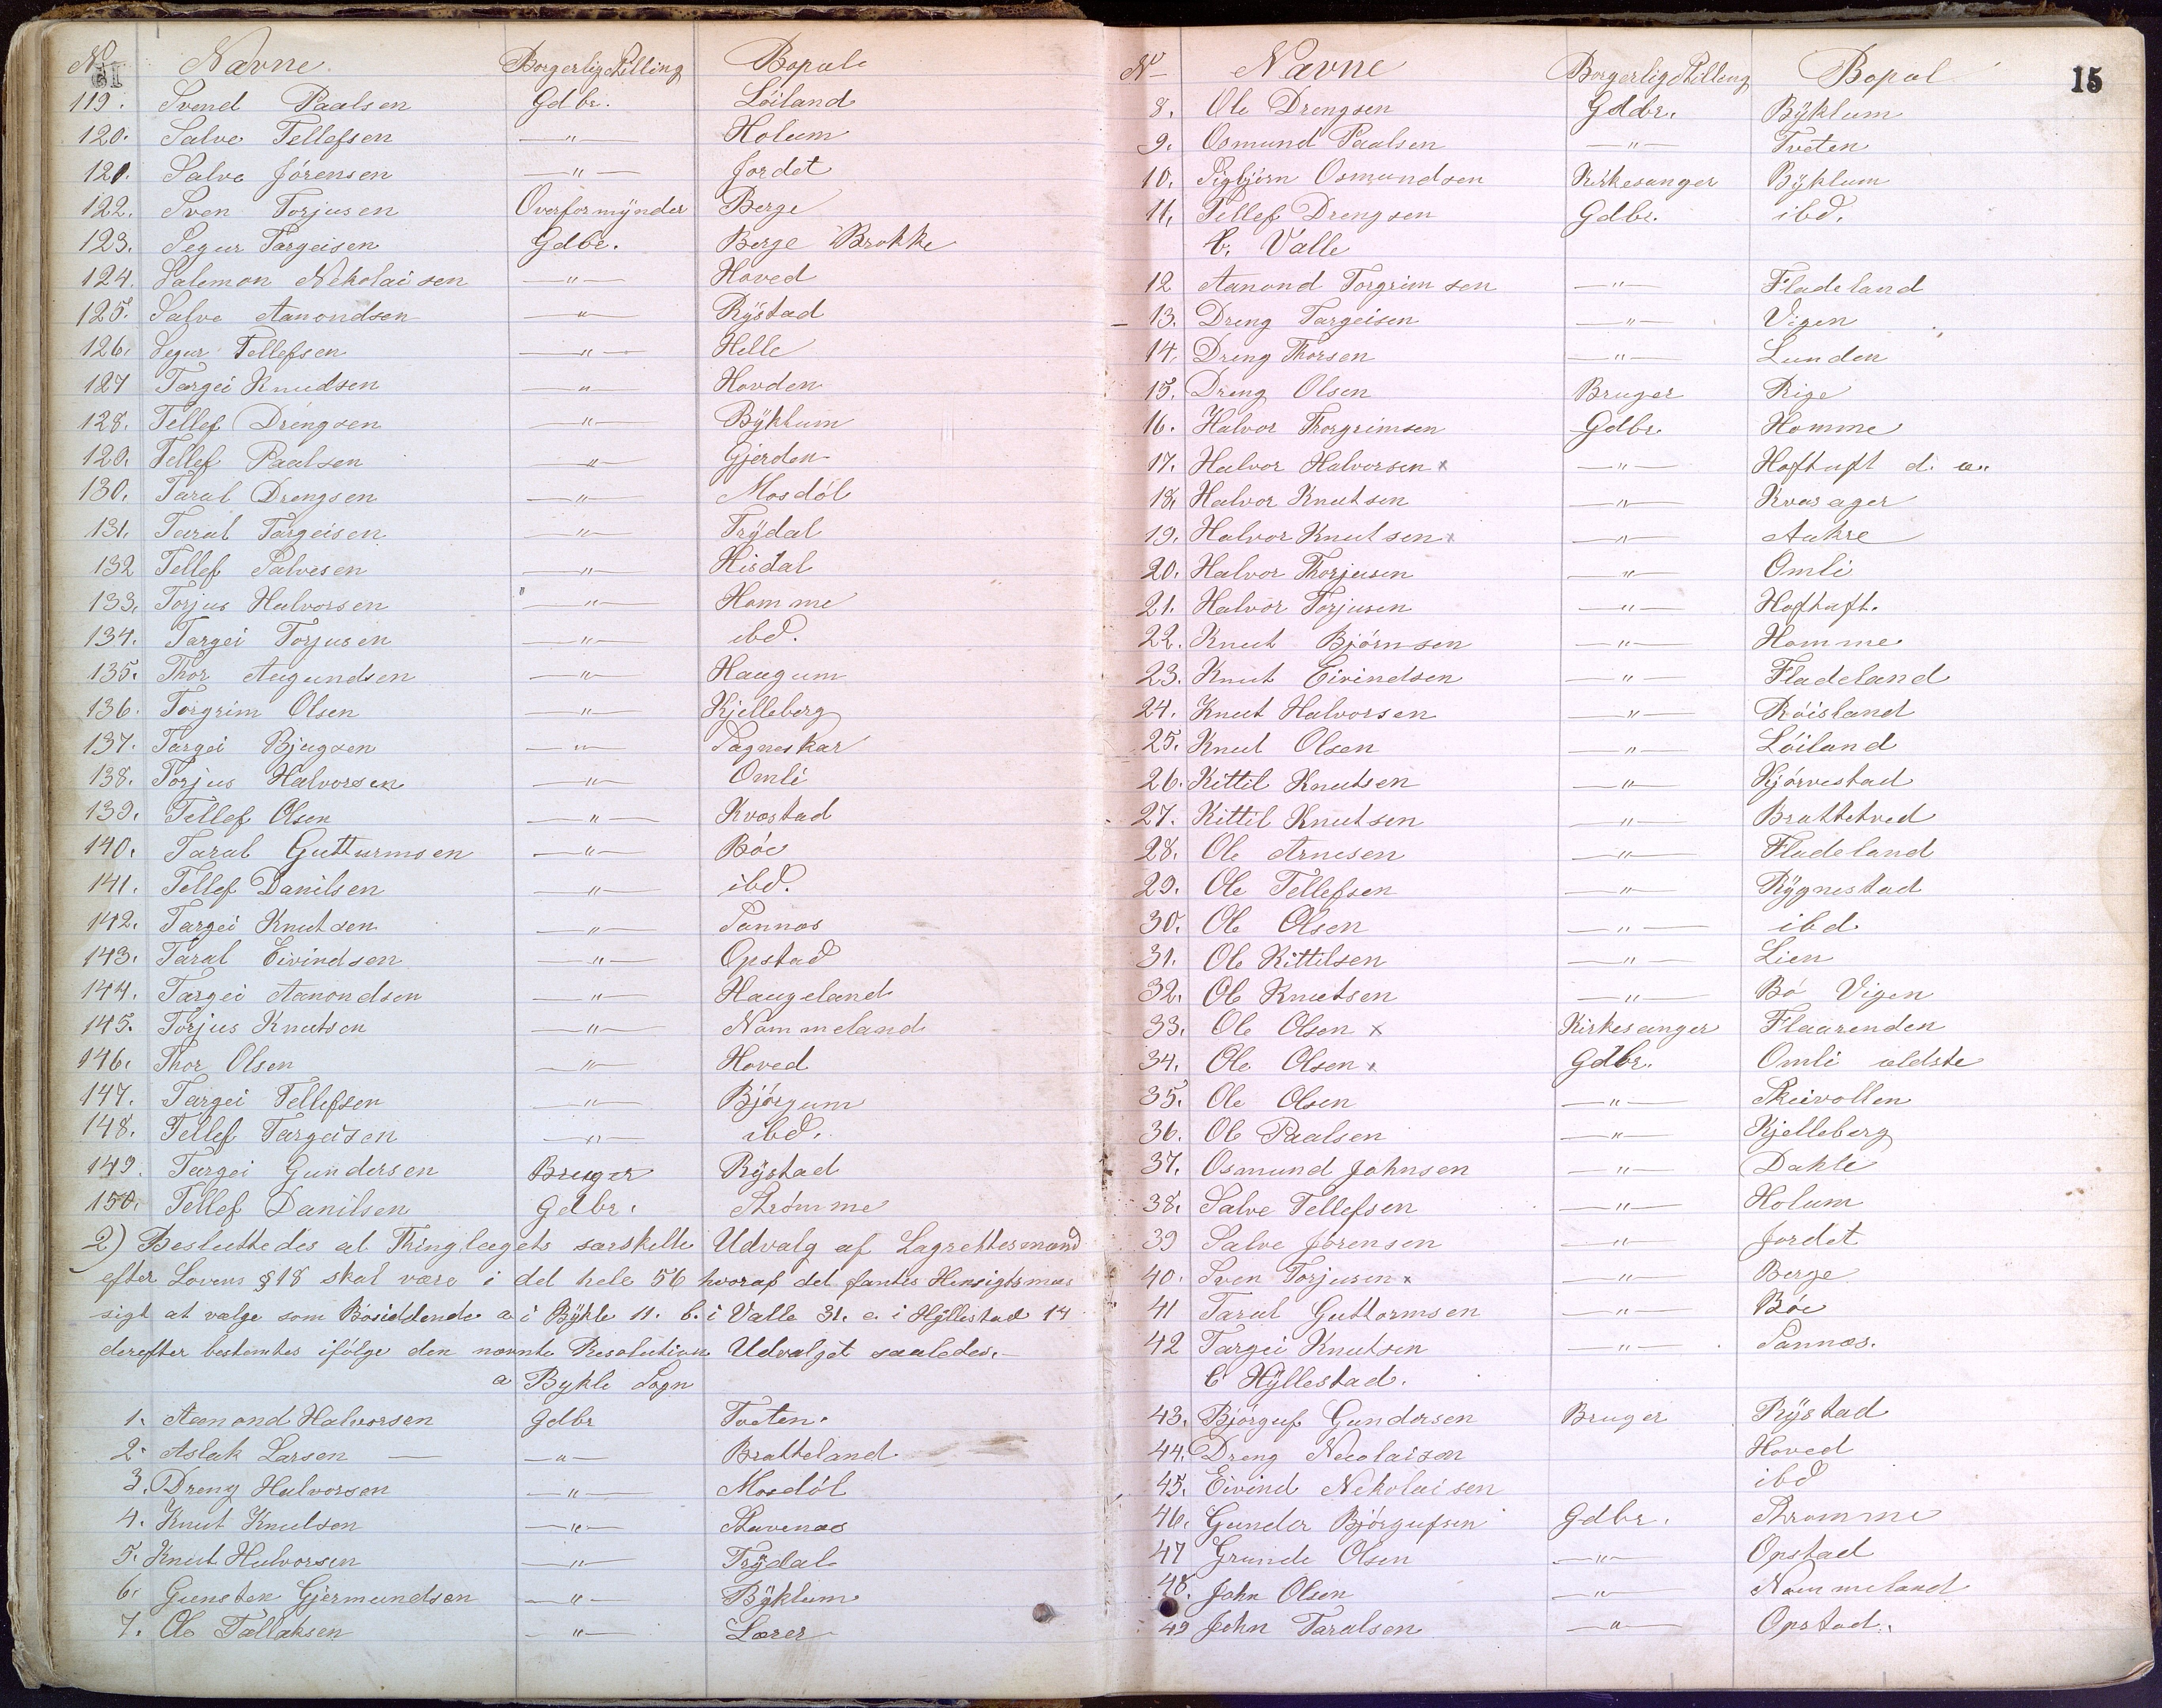 No Navne Borgerlig Stilling Bopæl
119. Svend Paalsen Gdbr. Löiland
120. Salve Tellefsen —"— Holum
121. Salve Jörensen —"— Jordet
122. Sven Torjusen Overformynder Berge
123. Segur Targeisen Gdbr. Berge Brokke
124. Salemon Nikolaisen —"— Hoved
125. Salve Aanondsen —"— Rÿstad
126. Segur Tellefsen —"— Helle
127 Targei Knudsen —"— Hovden
128. Tellef Drengsen —"— Bÿklum
129. Tellef Paalsen —"— Gjerden
130. Taral Drengsen —"— Mosdöl
131. Taral Targeisen —"— Trÿdal
132 Tellef Salvesen —"— Hisdal
133. Torjus Halvorsen —"— Homme
134. Targei Torjusen —"— ibd.
135. Thor Augundsen —"— Haugum
136. Torgrim Olsen —"— Kjelleberg
137. Targei Bjugsen —"— Sagneskar
138. Torjus Halvorsen —"— Omli
139. Tellef Olsen —"— Kvæstad
140. Taral Gutturmsen —"— Böe
141. Tellef Danilsen —"— ibd.
142. Targei Knutsen —"— Sannæs
143. Taral Eivindsen —"— Opstad
144. Targei Aanondsen —"— Haugeland
145. Torjus Knutsen —"— Nommeland
146. Thor Olsen —"— Hoved
147. Targei Tellefsen —"— Björgum
148. Tellef Targeisen —"— ibd.
149. Targei Gundersen Bruger Rÿstad
150. Tellef Danilsen Gdbr. Strömme
2) Besluttedes at Thinglagets særskilte Udvalg af Lagrettesmænd
efter Lovens § 18 skal være i det hele 56 hvoraf det fantes Hensigtsmæs
sigt at vælge som Bosiddende a i Bÿkle 11. b. i Valle 31. c. i Hÿllestad 14
derefter bestemtes ifölge den nævnte Resolution Udvalget saaledes.
a Bykle Sogn
1. Aanond Halvorsen Gdbr Tveten.
2. Aslak Larsen —"— Bratteland
3. Dreng Halvorsen —"— Mosdöl
4. Knut Knutsen —"— Stavenæs
5. Knut Halvorsen —"— Trÿdal
6. Gunsten Gjermundsen —"— Bÿklum
7. Ole Tallaksen —"— Lærer
No Navne Borgerlig Stilling Bopæl 15
8. Ole Drengsen Gdbr. Bÿklum
9. Osmund Paalsen —"— Tveten
10. Sigbjörn Osmundsen Kirkesanger Bÿklum
11. Tellef Drengsen Gdbr. ibd.
b. Valle
12 Aanond Torgrimsen —"— Fladeland
13. Dreng Targeisen —"— Vigen
14. Dreng Thorsen —"— Lunden
15. Dreng Olsen Bruger Rige
16. Halvor Thorgrimsen Gdbr. Homme
17. Halvor Halvorsen x —"— Hoftuft d. æ.
18. Halvor Knutsen —"— Kvasager
19. Halvor Knutsen x —"— Aakre
20. Halvor Thorjusen —"— Omli
21. Halvor Torjusen —"— Hoftuft.
22. Knut Björnsen —"— Homme
23. Knut Eivindsen —"— Fladeland
24. Knut Halvorsen —"— Röisland
25. Knut Olsen —"— Löiland
26. Kittil Knutsen —"— Kjörvestad
27. Kittil Knutsen —"— Brattetved
28. Ole Arnesen —"— Fladeland
29. Ole Tellefsen —"— Rÿgnestad
30. Ole Olsen —"— ibd.
31. Ole Kittilsen —"— Lien
32. Ole Knutsen —"— Bö Vigen
33. Ole Olsen x Kirkesanger Flaarenden
34. Ole Olsen x Gdbr. Omli ældste
35. Ole Olsen —"— Skeivollen
36. Ole Paalsen —"— Kjelleberg
37. Osmund Johnsen —"— Dahle
38. Salve Tellefsen —"— Holum
39 Salve Jörensen —"— Jordet
40. Sven Torjusen x —"— Berge
41 Taral Guttormsen —"— Böe
42 Targei Knutsen —"— Sannæs.
C Hÿllestad.
43. Björguf Gundersen Bruger Rÿstad
44. Dreng Nicolaisen Hoved
45. Eivind Nikolaisen ibd
46. Gunder Björgufsen Gdbr. Strömme
47 Grunde Olsen —"— Opstad
48. John Olsen —"— Nommeland
49 John Taralsen —"— Opstad.